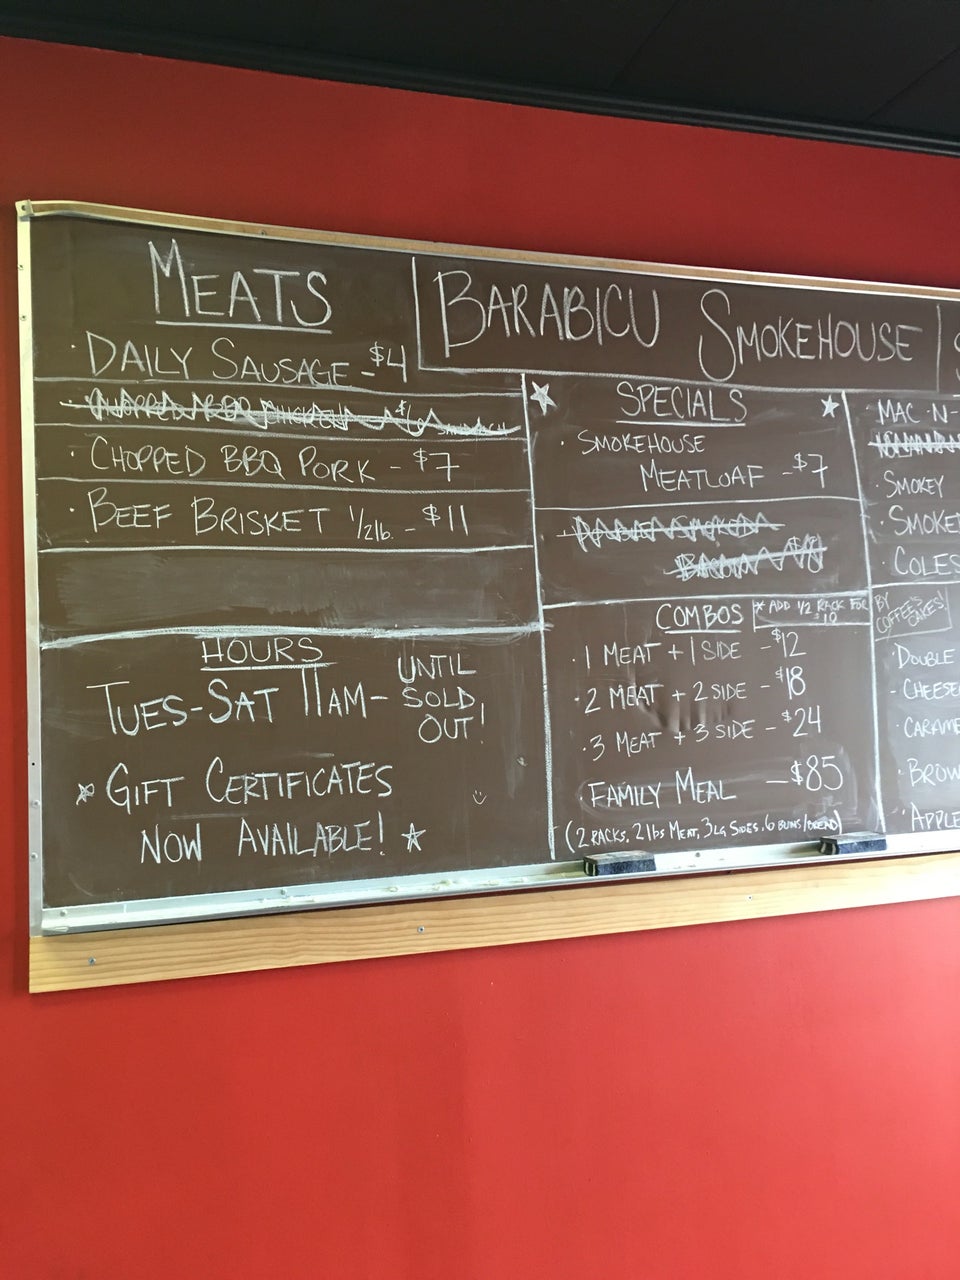 MEATS
· DAILY SAUSAGE - $4
· CHOPPED BBQ CHICKEN $6 SANDWICH
· CHOPPED BBQ PORK - $7
· BEEF BRISKET 1/2lb. - $11
HOURS
TUES-SAT 11AM- UNTIL
SOLD
OUT!
* GIFT CERTIFICATES
NOW AVAILABLE! ☆
BARABICU SMOKEHOUSE
SPECIALS
· SMOKEHOUSE
MEATLOAF - $7
SMOKED
$8
COMBOS
* ADD 1/2 RACK FOR
$10
· 1 MEAT + 1 SIDE - $12
· 2 MEAT + 2 SIDE - $18
· 3 MEAT + 3 SIDE - $24
· FAMILY MEAL - $85
(2 RACKS, 2 lbs MEAT, 3 LG SIDES, 6 BUNS/BREAD)
S
· MAC-N-
· SMOKEY
· SMOKED
· COLES
BY
COFFEE'S
CAKES!
· DOUBLE
- CHEESE
· CARAME
· BROW
· APPLE